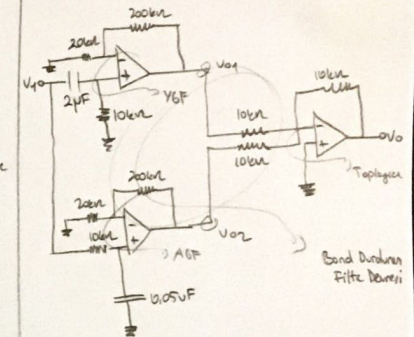 200kΩ
20kΩ
Vg
2µF
10kΩ
YGF
Vo1
10kΩ
10kΩ
10kΩ
Vo
Toplayıcı
200kΩ
20kΩ
10kΩ
AGF
Vo2
0,05uF
Band Durduran
Filtre Devresi